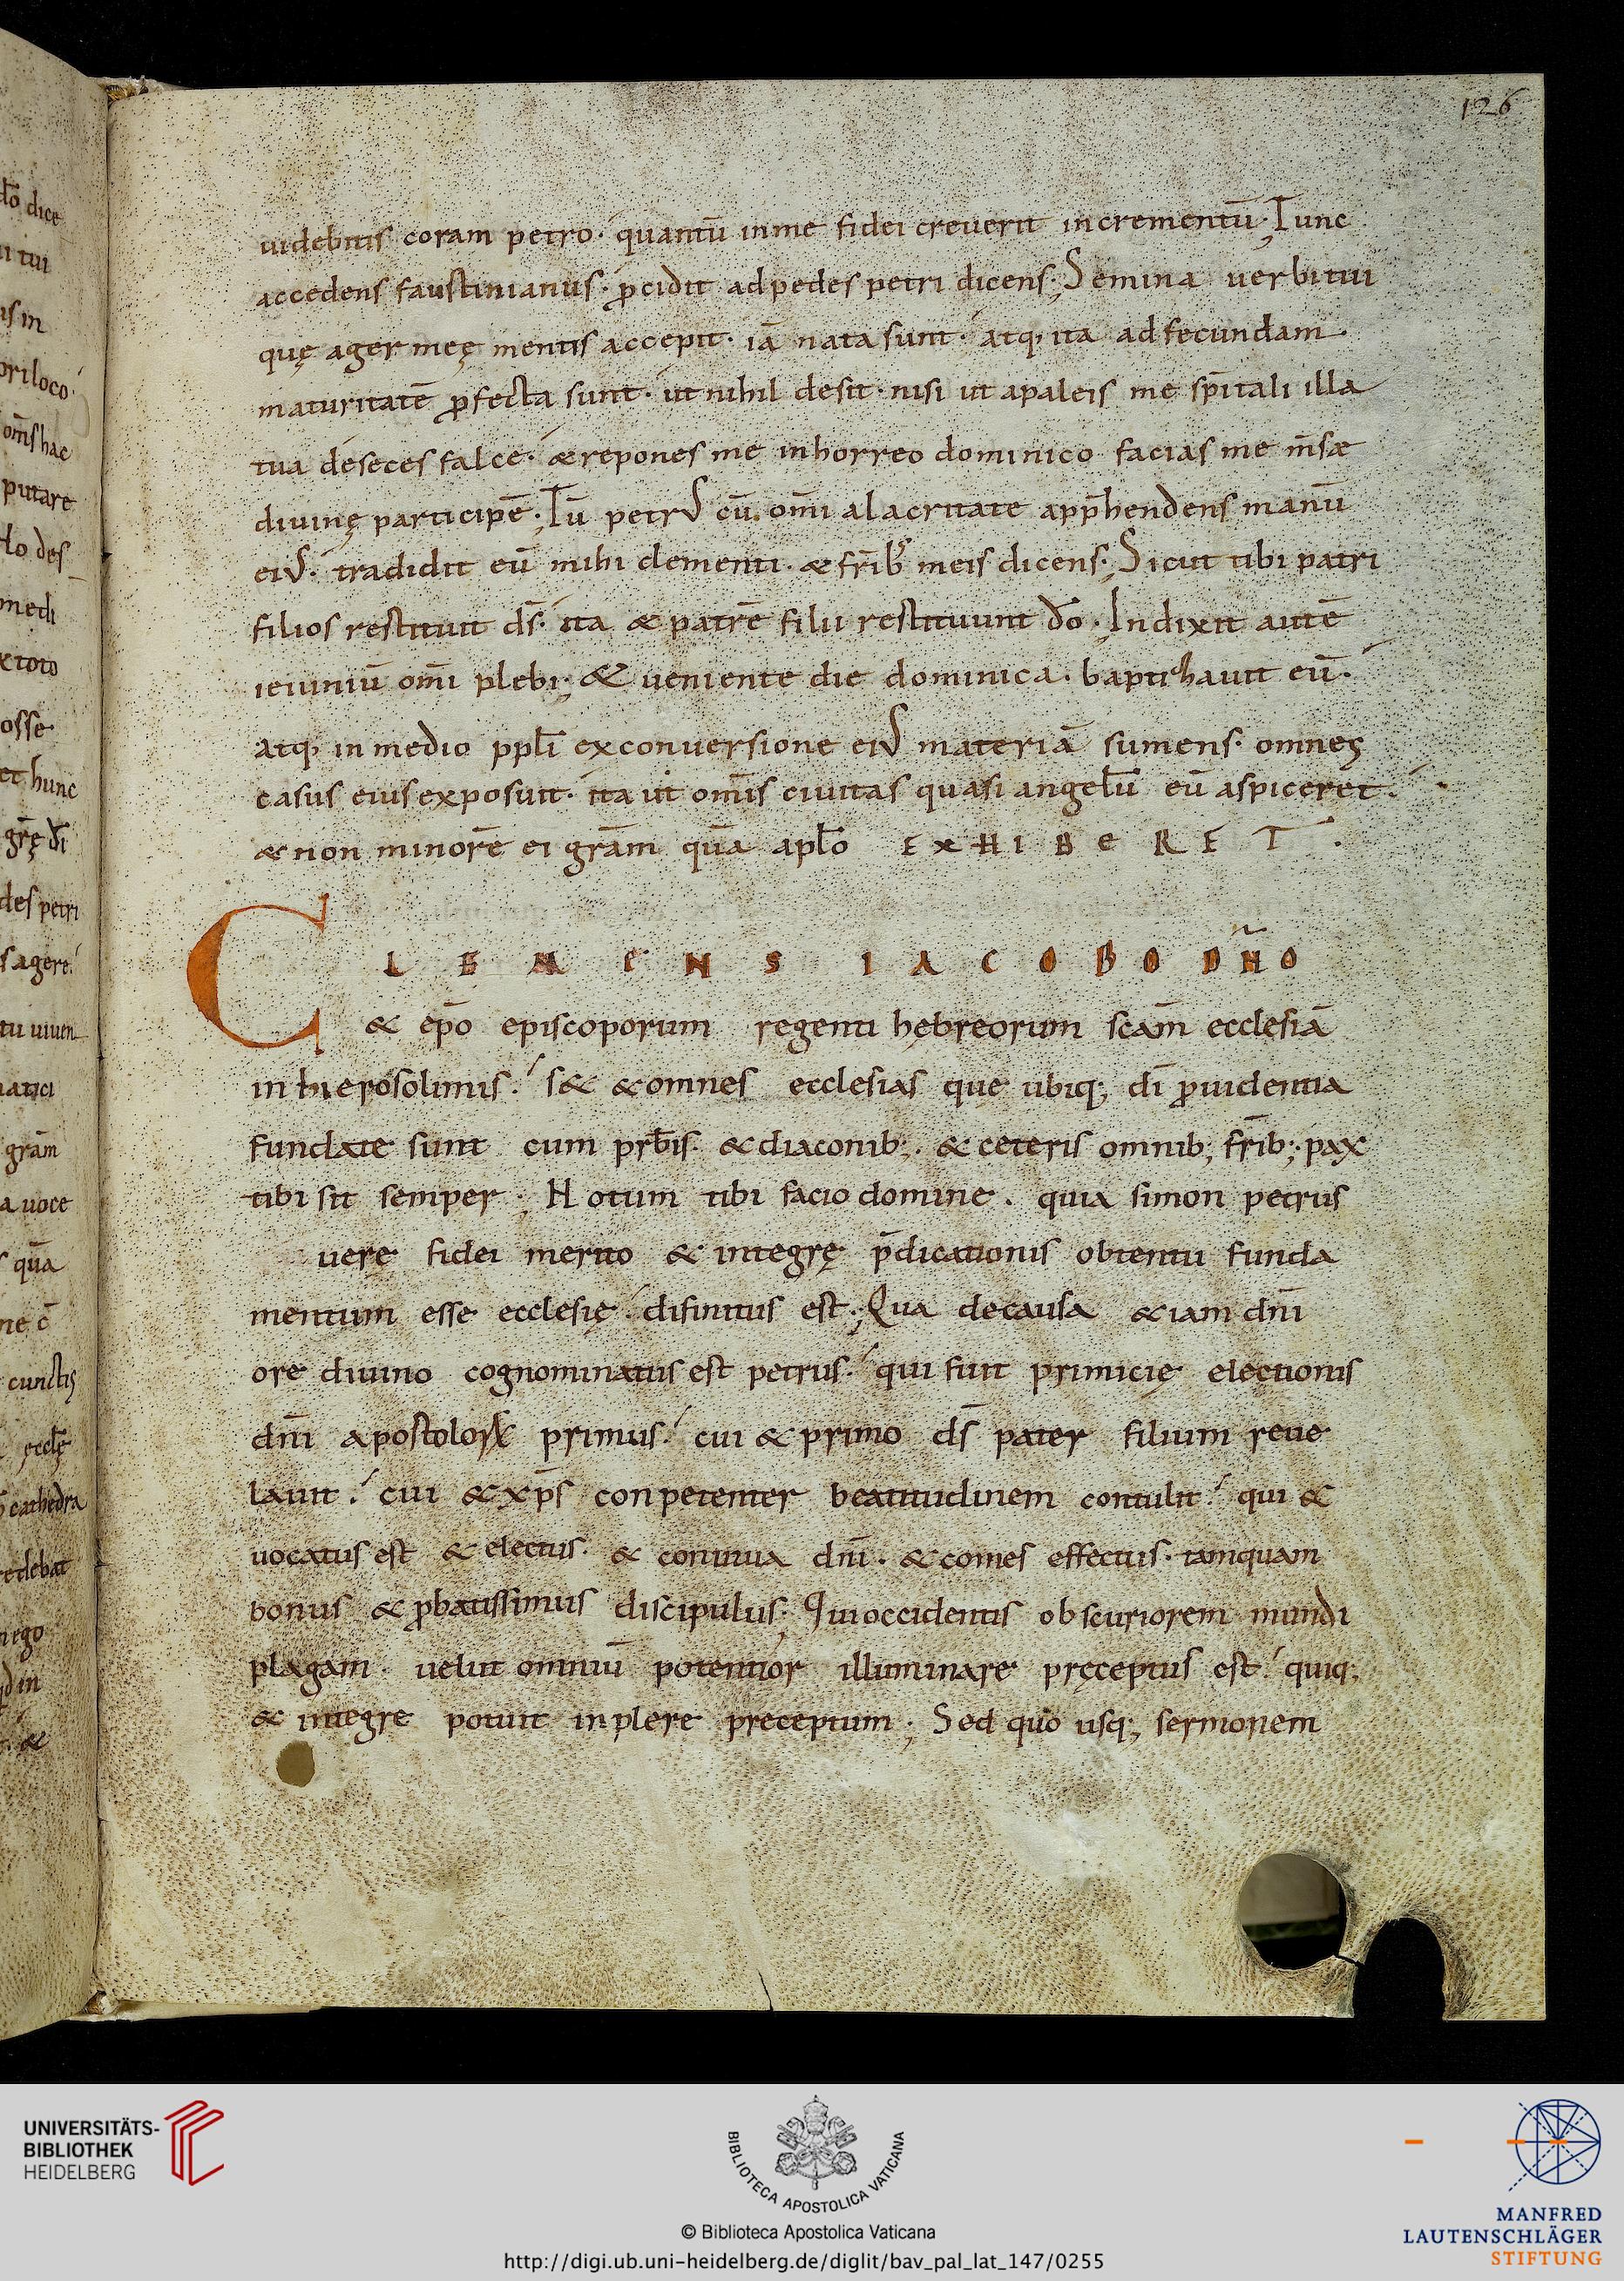 126
uidebitis coram petro · quantū inme fidei creuerit incrementū ; Tunc
accedens faustinianus · p̄cidit ad pedes petri dicens ; Semina uerbi tui
quę ager meę mentis accepit · iā nata sunt · atq; ita ad fecundam
maturitatē ꝓfecta sunt · ut nihil desit · nisi ut apaleis me sp̄itali illa
tua deseces falce · & repones me inhorreo dominico facias me m̄sæ
diuinę participē ; Tū petrus cū om̄i alacritate app̄hendens manū
eius · tradidit eū mihi clementi · & fr̄ib; meis dicens ; Sicut tibi patri
filios restituit d̄s · ita & patrē filii restituunt d̄o · Indixit autē
ieiuniū om̄i plebi ; & ueniente die dominica · baptizauit eū ·
atq; in medio pp̄li exconuersione eius materiā sumens · omnes
casus eius exposuit · ita ut om̄is ciuitas quasi angelū eū aspiceret ·
& non minorē ei grām quā aplo EXHIBERET ·
CLEMENS IACOBO DN̄O
& ep̄o episcoporum regenti hębreorum scām ecclesiā
in hierosolimis · s& & omnes ecclesias que ubiq; d̄i ꝓuidentia
fundate sunt cum prb̄is · & diaconib; · & ceteris omnib; fr̄ib; · pax
tibi sit semper ; Notum tibi facio domine · quia simon petrus
uerę fidei merito & integrę p̄dicationis obtentu funda
mentum esse ecclesię · difinitus est ; Qua decausa &iam dn̄i
ore diuino cognominatus est petrus · qui fuit primicię electionis
dn̄i apostoloꝝ primus · cui & primo d̄s pater filium reue
lauit · cui & xp̄s conpetenter beatitudinem contulit · qui &
uocatus est & electus · & conuiua dn̄i · & comes effectus · tamquam
bonus & ꝓbatissimus discipulus ; Qui occidentis obscuriorem mundi
plagam · uelut omniū potentior illuminare pręceptus est · quiq;
& integre potuit inplere preceptum ; Sed quo usq; sermonem
UNIVERSITÄTS-
BIBLIOTHEK
HEIDELBERG
BIBLIOTECA APOSTOLICA VATICANA
© Biblioteca Apostolica Vaticana
http://digi.ub.uni-heidelberg.de/diglit/bav_pal_lat_147/0255
MANFRED
LAUTENSCHLÄGER
STIFTUNG